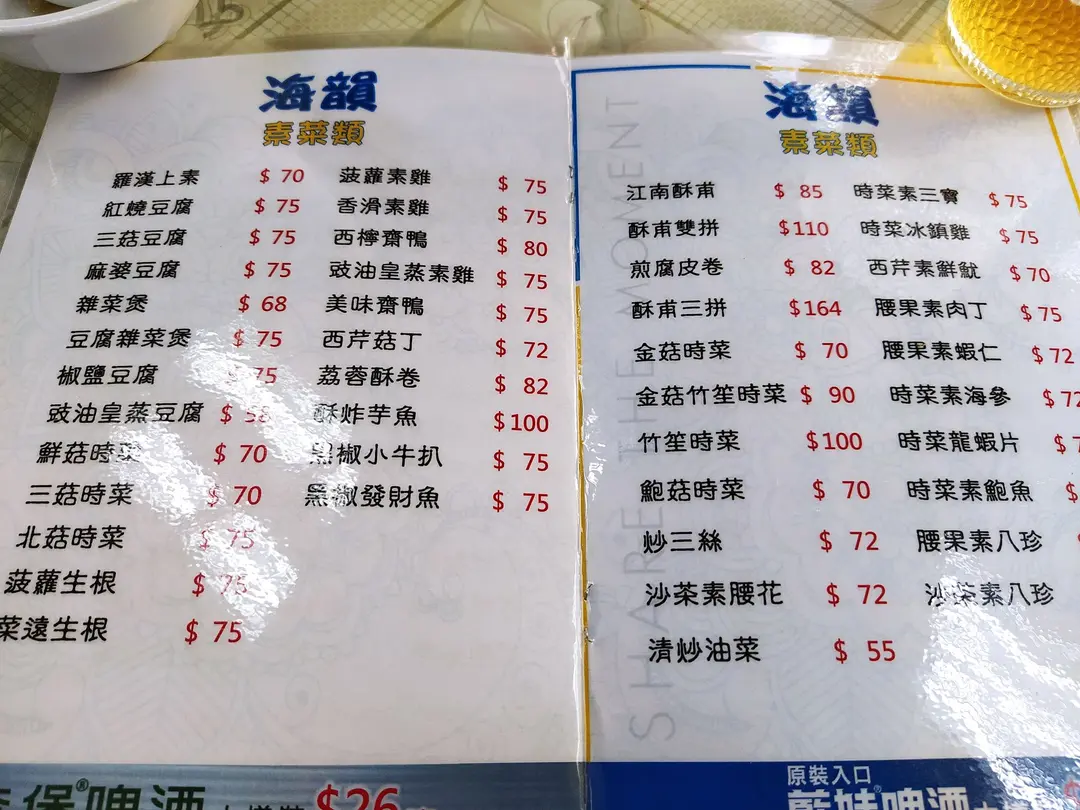 海韻
素菜類
羅漢上素 $ 70 菠蘿素雞 $ 75
紅燒豆腐 $ 75 香滑素雞 $ 75
三菇豆腐 $ 75 西檸齋鴨 $ 80
麻婆豆腐 $ 75 豉油皇蒸素雞 $ 75
雜菜煲 $ 68 美味齋鴨 $ 75
豆腐雜菜煲 $ 75 西芹菇丁 $ 72
椒鹽豆腐 $ 75 荔蓉酥卷 $ 82
豉油皇蒸豆腐 $ 58 酥炸芋魚 $100
鮮菇時菜 $ 70 黑椒小牛扒 $ 75
三菇時菜 $ 70 黑椒發財魚 $ 75
北菇時菜 $ 75
菠蘿生根 $ 75
菜遠生根 $ 75
啤酒 $26
海韻
素菜類
SHARE THE MOMENT
江南酥甫 $ 85 時菜素三寶 $ 75
酥甫雙拼 $110 時菜冰鎮雞 $ 75
煎腐皮卷 $ 82 西芹素鮮魷 $ 70
酥甫三拼 $164 腰果素肉丁 $ 75
金菇時菜 $ 70 腰果素蝦仁 $ 72
金菇竹笙時菜 $ 90 時菜素海參 $ 72
竹笙時菜 $100 時菜龍蝦片 $
鮑菇時菜 $ 70 時菜素鮑魚 $
炒三絲 $ 72 腰果素八珍
沙茶素腰花 $ 72 沙茶素八珍
清炒油菜 $ 55
原裝入口
藍妹啤酒